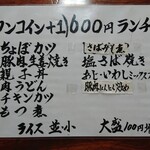 ワンコイン+1,600円ランチ
ちょぼカツ
豚肉生姜焼き
親子丼
肉うどん
チキンカツ
もつ煮
さばみそ煮
塩さば焼き
あじ・いわしミックス
豚肉にんにく炒め
ライス並・小
大盛100円増